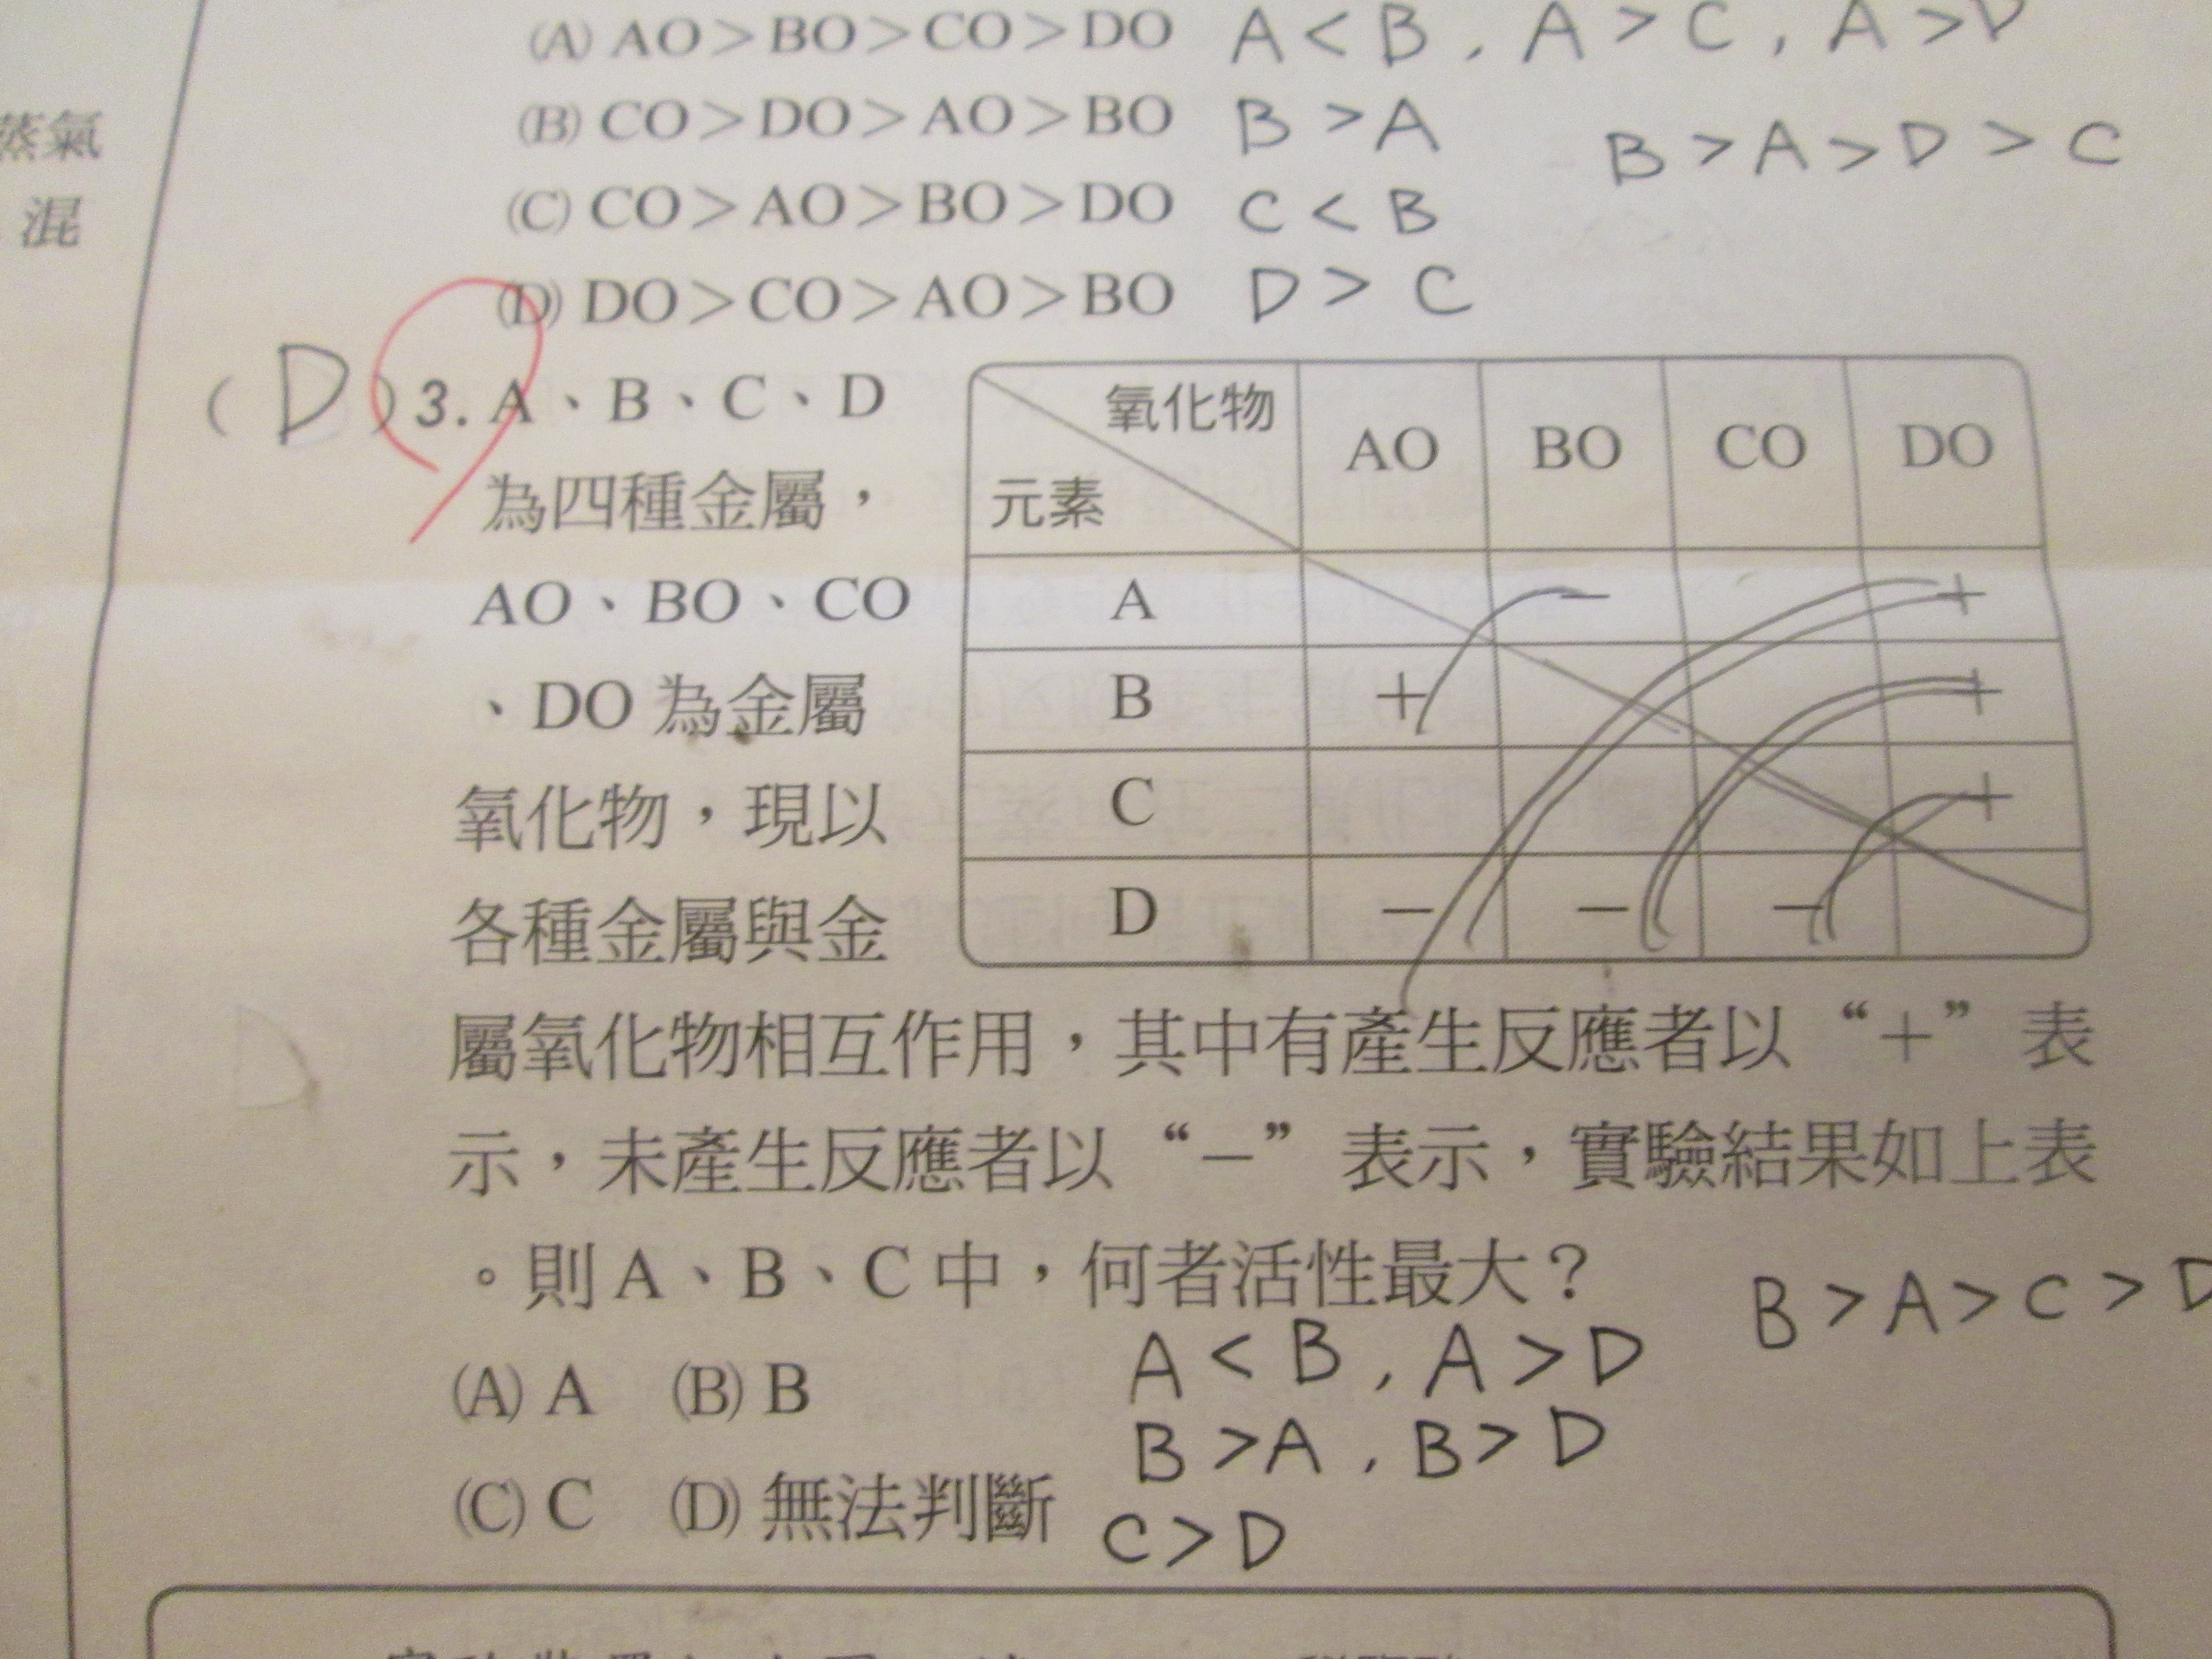 (A) AO＞BO＞CO＞DO A < B , A > C , A > D
(B) CO＞DO＞AO＞BO B > A
B > A > D > C
(C) CO＞AO＞BO＞DO C < B
(D) DO＞CO＞AO＞BO D > C
蒸氣
混
( D ) 3. A、B、C、D
為四種金屬，
AO、BO、CO
、DO 為金屬
氧化物，現以
各種金屬與金
氧化物 AO BO CO DO
元素
A － ＋
B ＋ ＋
C ＋
D － － －
屬氧化物相互作用，其中有產生反應者以 “＋” 表
示，未產生反應者以 “－” 表示，實驗結果如上表
。則 A、B、C 中，何者活性最大？
B > A > C > D
(A) A (B) B
A < B , A > D
B > A , B > D
(C) C (D) 無法判斷
C > D